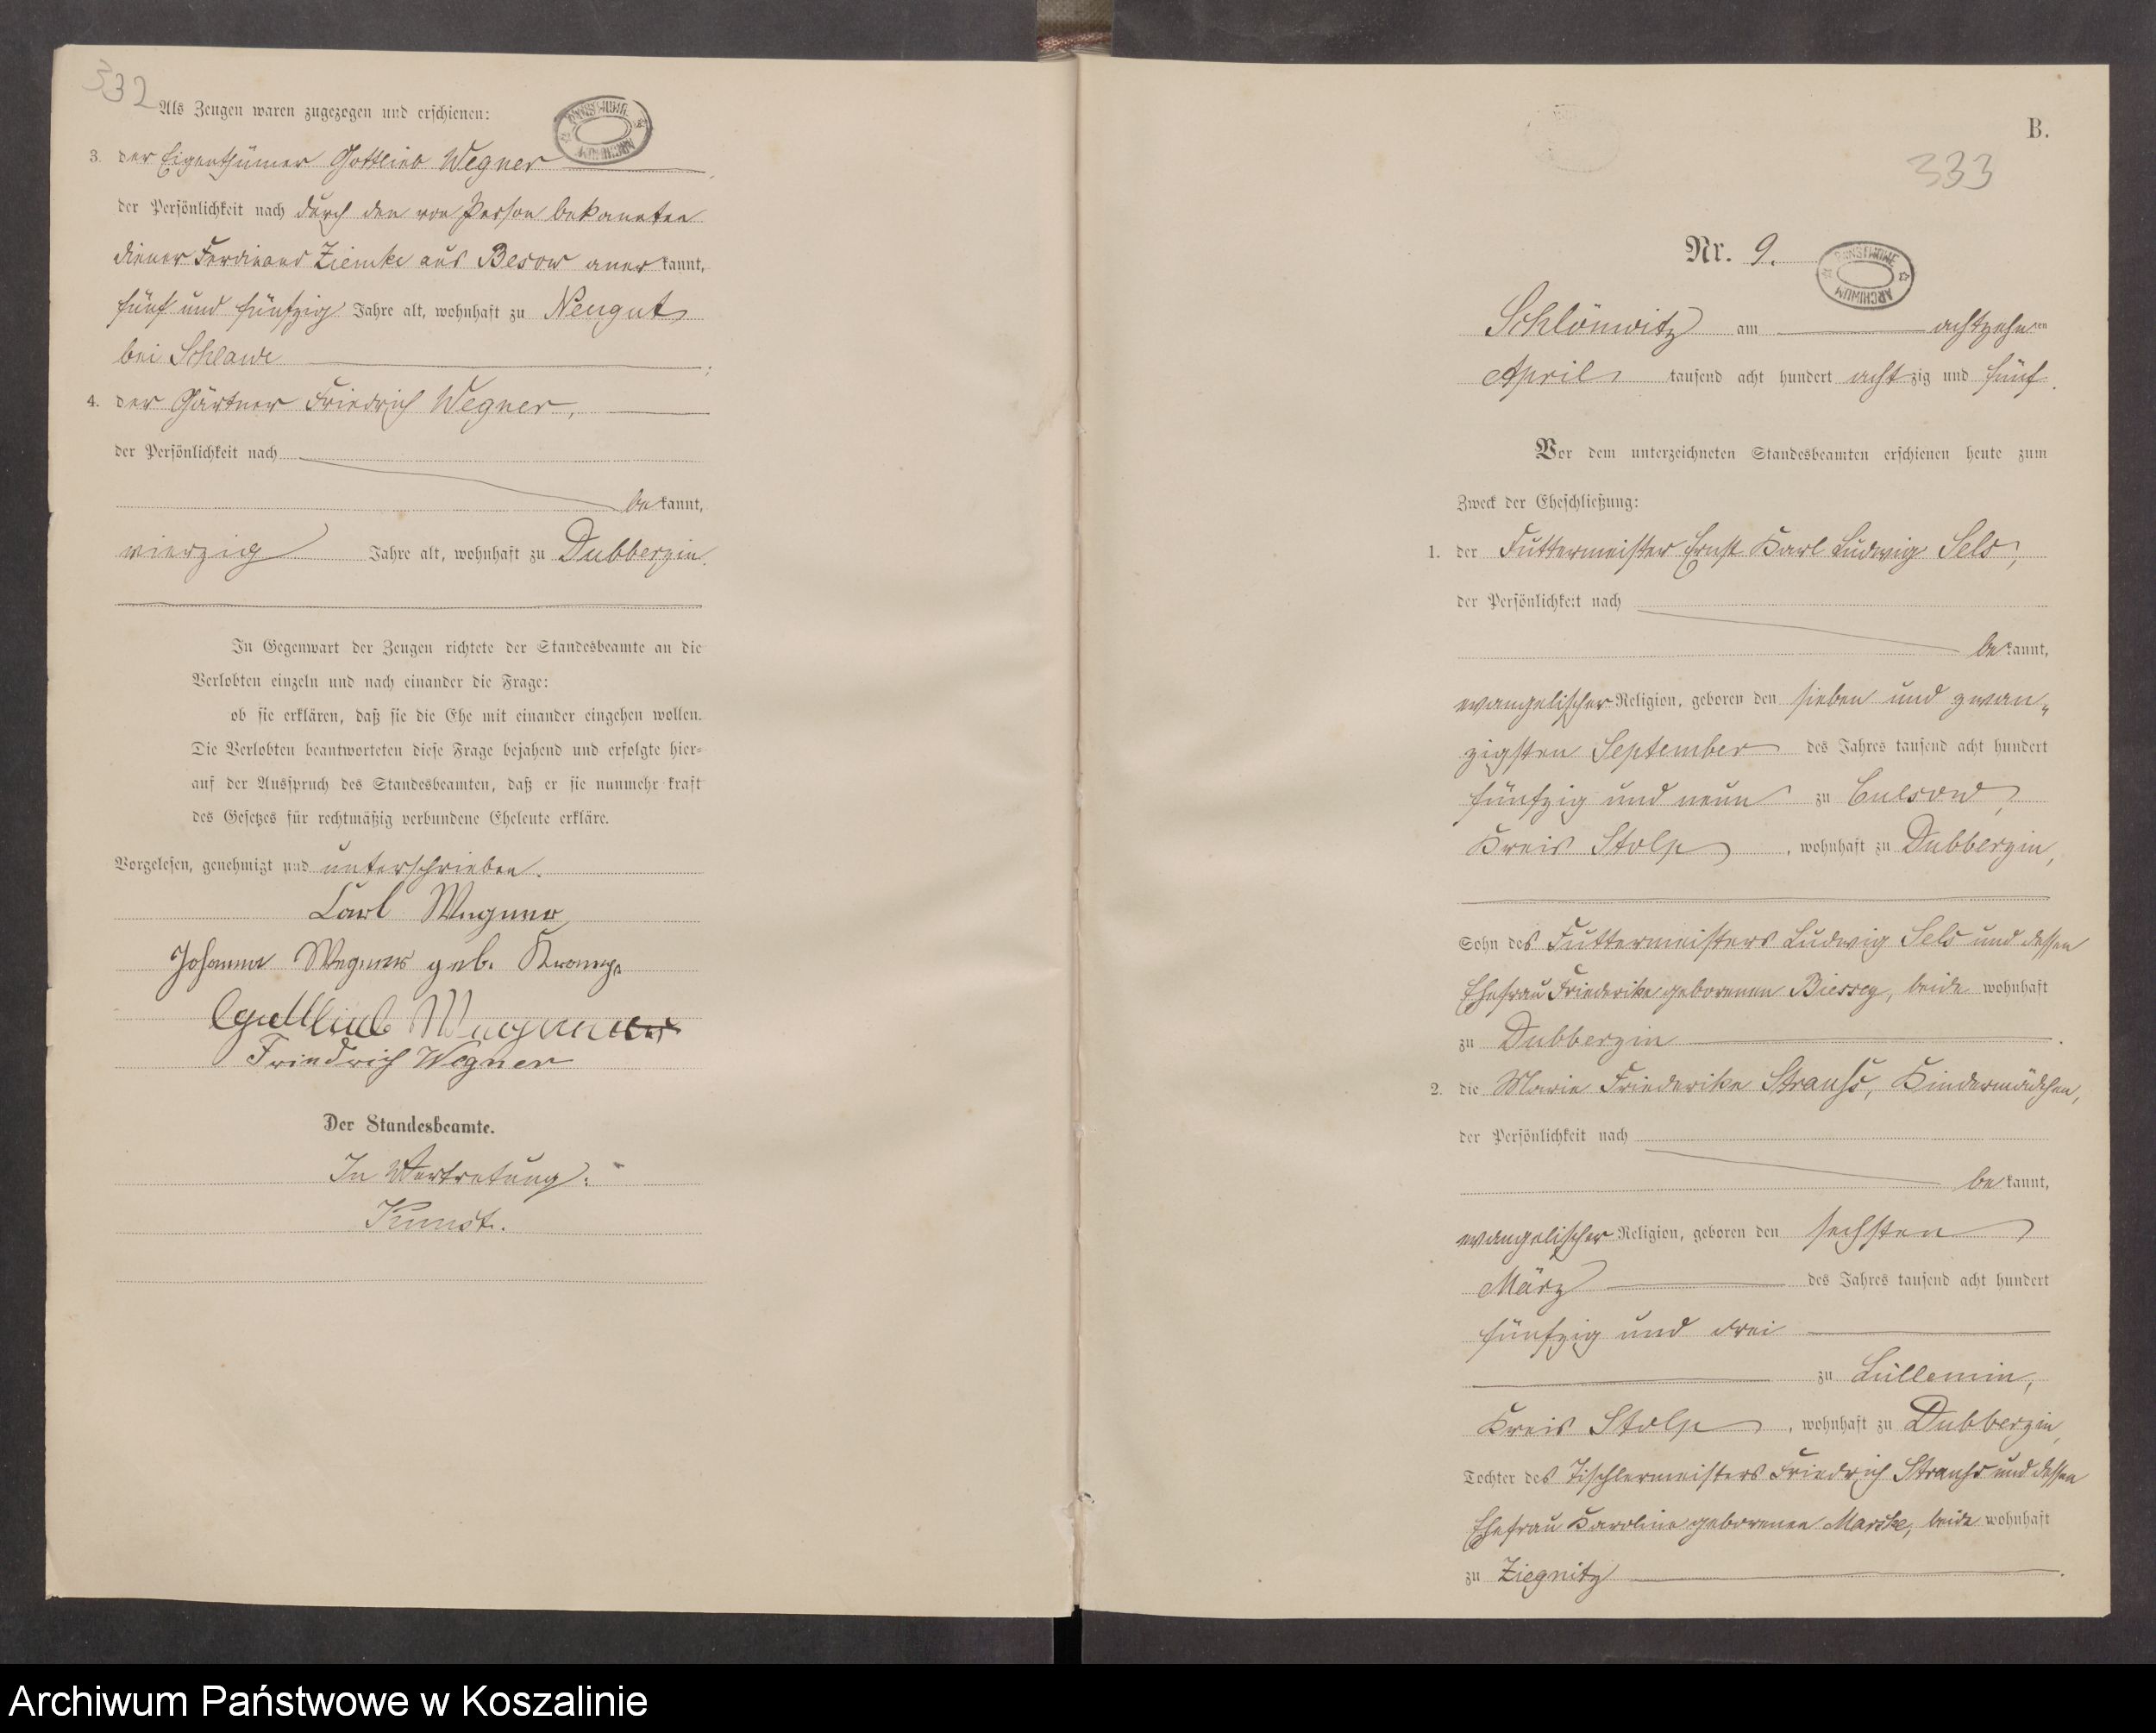 332
Als Zeugen waren zugezogen und erschienen:
3. der Eigenthümer Gottlieb Wegner
der Persönlichkeit nach durch den von Person bekannten
diener Ferdinand Ziemke aus Besow anerkannt,
fünf und fünfzig Jahre alt, wohnhaft zu Neugut
bei Schlawe
4. der Gärtner Friedrich Wegner,
der Persönlichkeit nach
bekannt,
vierzig Jahre alt, wohnhaft zu Dubberzin.
In Gegenwart der Zeugen richtete der Standesbeamte an die
Verlobten einzeln und nach einander die Frage:
ob sie erklären, daß sie die Ehe mit einander eingehen wollen.
Die Verlobten beantworteten diese Frage bejahend und erfolgte hier-
auf der Ausspruch des Standesbeamten, daß er sie nunmehr kraft
des Gesetzes für rechtmäßig verbundene Eheleute erkläre.
Vorgelesen, genehmigt und unterschrieben.
Carl Wegner
Johanne Wegner geb.
Gottlieb Wegner
Friedrich Wegner
Der Standesbeamte.
In Vertretung:
Kunst.
B.
333
Nr. 9.
PAŃSTWOWE ARCHIWUM
Schlönwitz am achtzehnten
April tausend acht hundert achtzig und fünf.
Vor dem unterzeichneten Standesbeamten erschienen heute zum
Zweck der Eheschließung:
1. der Futtermeister Ernst Karl Ludwig Sels,
der Persönlichkeit nach
bekannt,
evangelischer Religion, geboren den sieben und zwan-
zigsten September des Jahres tausend acht hundert
fünfzig und neun zu Culsow,
Kreis Stolp, wohnhaft zu Dubberzin,
Sohn des Futtermeisters Ludwig Sels und dessen
Ehefrau Friederike geborenen Biessey, beide wohnhaft
zu Dubberzin.
2. die Marie Friederike Strauß, Kindermädchen,
der Persönlichkeit nach
bekannt,
evangelischer Religion, geboren den sechsten
März des Jahres tausend acht hundert
fünfzig und drei
zu Lüllemin,
Kreis Stolp, wohnhaft zu Dubberzin,
Tochter des Tischlermeisters Friedrich Strauß und dessen
Ehefrau Karoline geborenen Marske, beide wohnhaft
zu Ziegnitz.
Archiwum Państwowe w Koszalinie